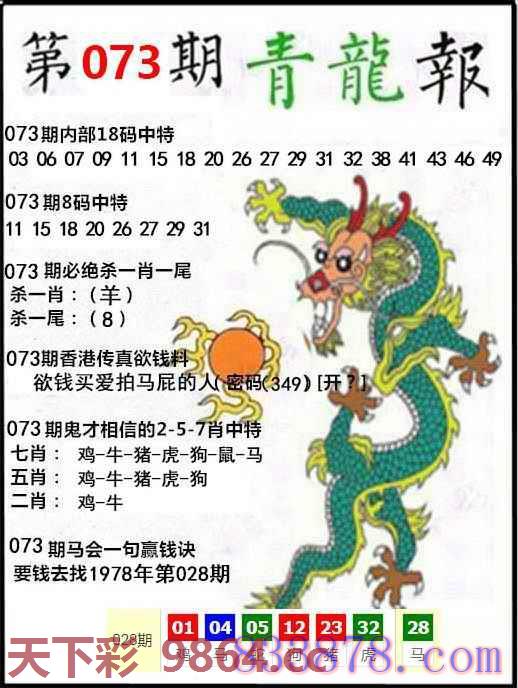 第073期青龍報
073期内部18码中特
03 06 07 09 11 15 18 20 26 27 29 31 32 38 41 43 46 49
073期8码中特
11 15 18 20 26 27 29 31
073期必绝杀一肖一尾
杀一肖：（羊）
杀一尾：（8）
073期香港传真欲钱料
欲钱买爱拍马屁的人（密码(349)［开？］
073期鬼才相信的2-5-7肖中特
七肖： 鸡-牛-猪-虎-狗-鼠-马
五肖： 鸡-牛-猪-虎-狗
二肖： 鸡-牛
073期马会一句赢钱诀
要钱去找1978年第028期
028期 01 04 05 12 23 32 28
鸡 马 狗 猪 虎 马
天下彩 9864.cc
878.com